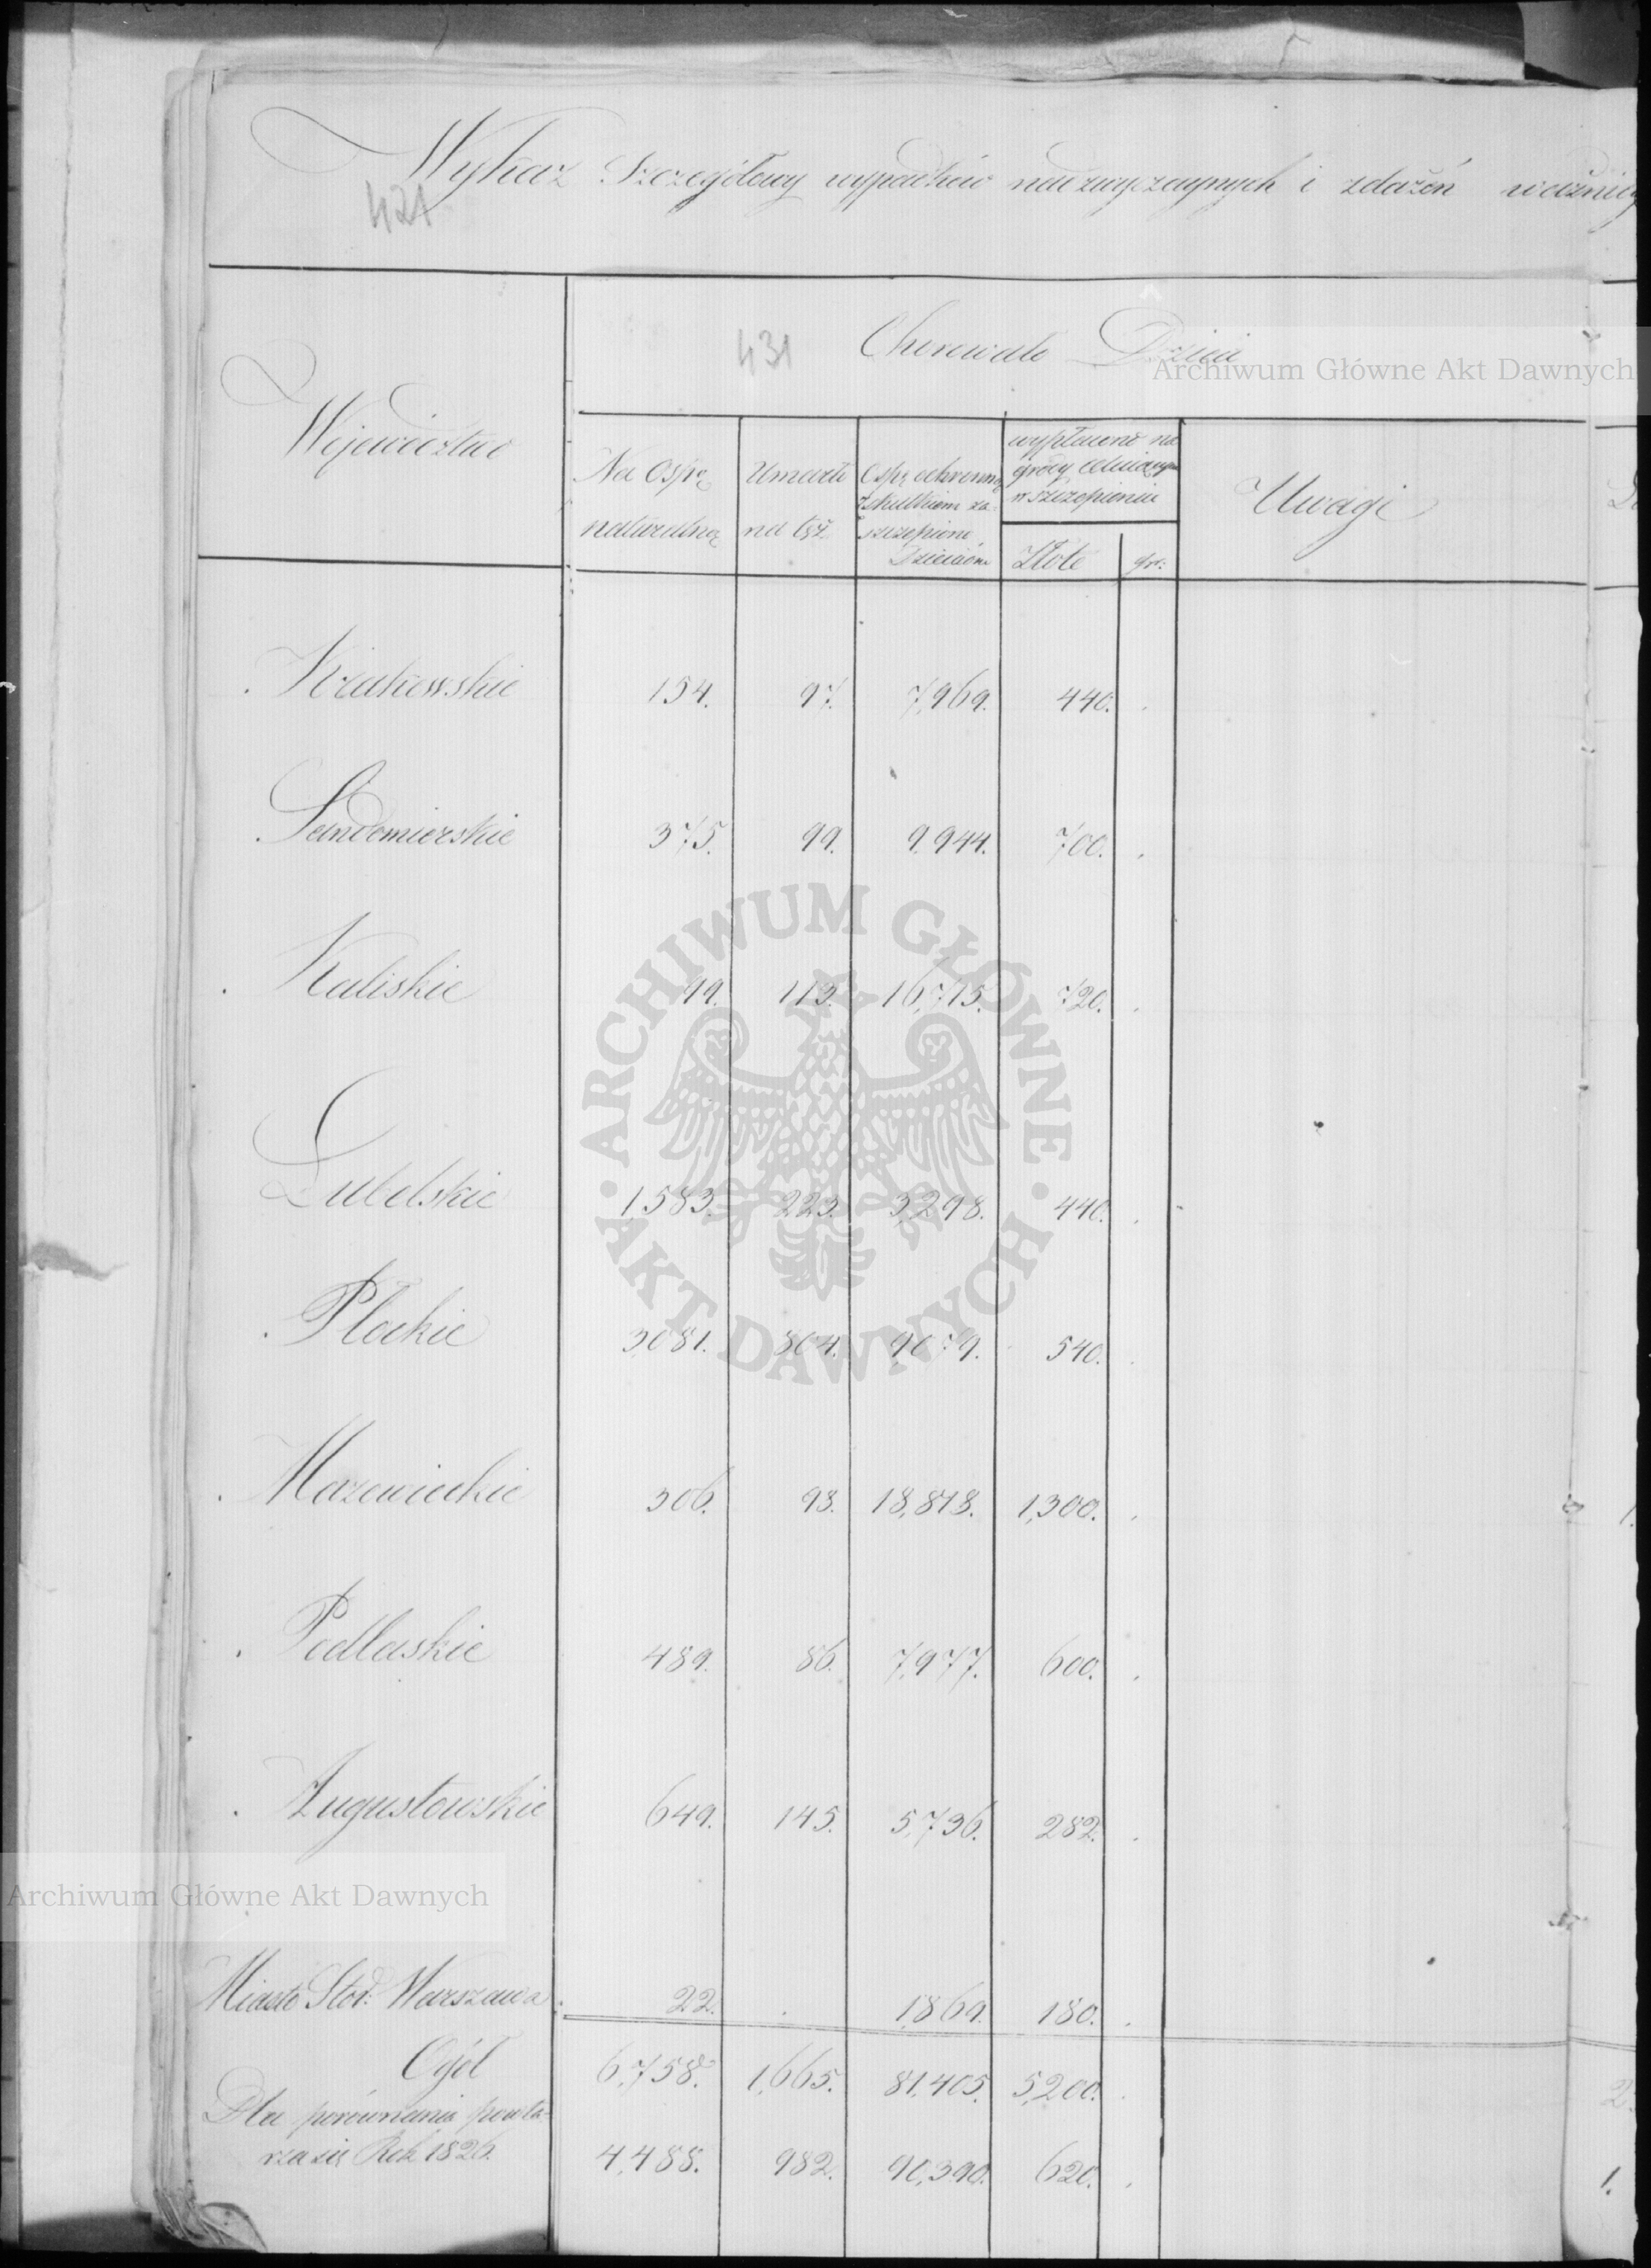 Wykaz Szczegółowy wypadków nadzwyczaynych i zdażeń ważniey
421
431
Chorowało Dzieci
Województwo
Na Ospę naturalną
Umarło na tęż
Ospę ochronną z skutkiem zaszczepiono Dzieciom
wypłacono nagrody celuiącym w szczepieniu
Złote
gr:
Uwagi
Krakowskie 154. 97. 7,969. 440. .
Sandomierskie 375. 99. 9,944. 700. .
Kaliskie 99. 113. 16,715. 720. .
Lubelskie 1,583. 223. 3,298. 440. .
Płockie 3,081. 804. 9,079. 540. .
Mazowieckie 306. 98. 18,818. 1,300. .
Podlaskie 489. 86. 7,977. 600. .
Augustowskie 649. 145. 5,736. 282. .
Miasto Stoł: Warszawa 22. . 1,869. 180. .
Ogół 6,758. 1,665. 81,405. 5,200. .
Dla porównania powta-
rza się Rok 1826. 4,488. 982. 90,390. 620. .
Archiwum Główne Akt Dawnych
ARCHIWUM GŁÓWNE · AKT DAWNYCH ·
Archiwum Główne Akt Dawnych